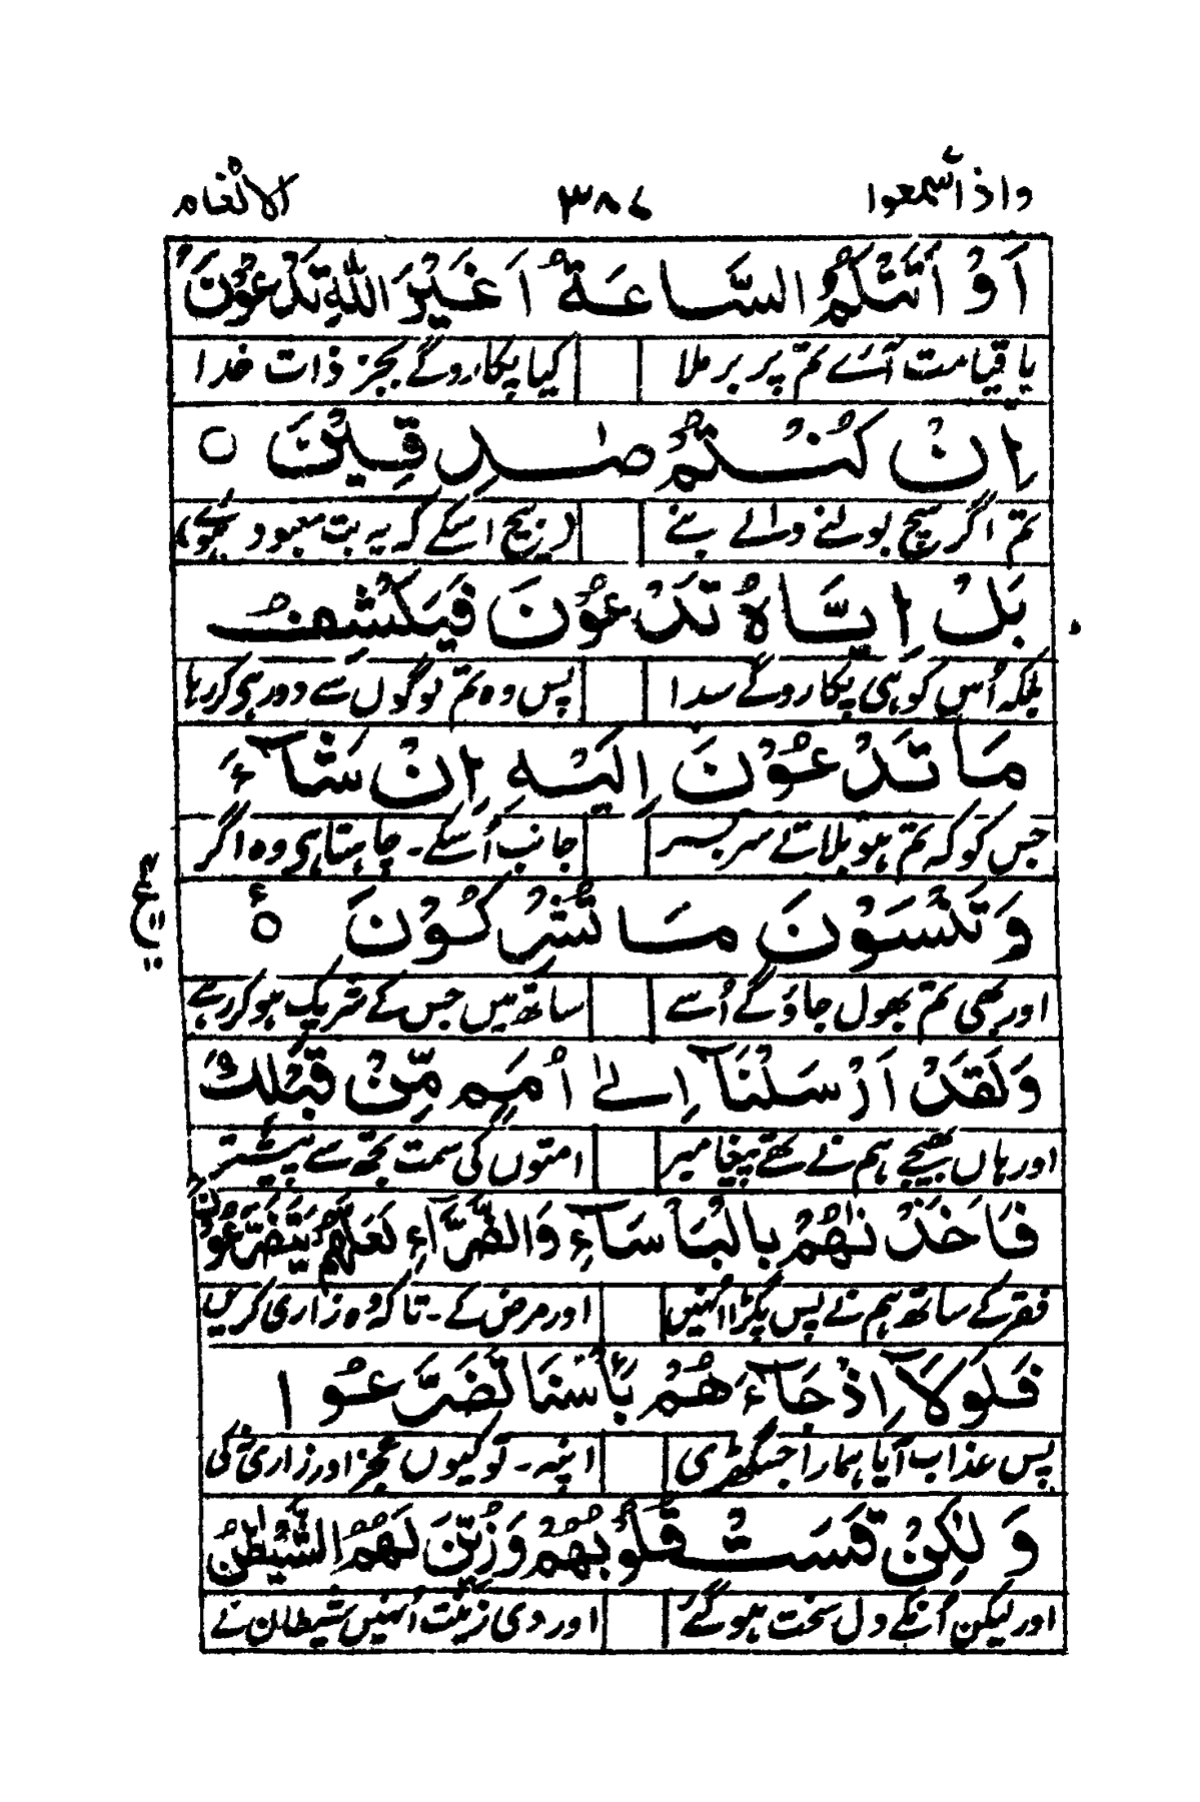 واذاسمعوا ۳۸۶ الانعام
اَوْ اَتَتْكُمُ السَّاعَةُ اَغَيْرَ اللّٰهِ تَدْعُوْنَ
یا قیامت آئے تم پر برملا کیا پکاروگے بجز ذات خدا
اِنْ كُنْتُمْ صٰدِقِيْنَ ○
تم اگر سچ بولنے والے بنے (زیچ اسکے کہ یہ بت معبود تھے)
بَلْ اِيَّاهُ تَدْعُوْنَ فَيَكْشِفُ
بلکہ اُس کو ہی پکاروگے سدا پس وہ تم لوگوں سے دور ہی کر رہا
مَا تَدْعُوْنَ اِلَيْهِ اِنْ شَآءَ
جس کو کہ تم ہو بلاتے سر بسر جانب اُسکے۔ چاہتا ہی وہ اگر
وَتَنْسَوْنَ مَا تُشْرِكُوْنَ ○
اور بھی تم بھول جاؤگے اُسے ساتھ ہیں جس کے شریک ہو کر رہے
وَلَقَدْ اَرْسَلْنَآ اِلٰٓى اُمَمٍ مِّنْ قَبْلِكَ
اور ہاں بھیجے ہم نے تھے پیغامبر امتوں کی سمت تجھ سے پیشتر
فَاَخَذْنٰهُمْ بِالْبَاْسَآءِ وَالضَّرَّآءِ لَعَلَّهُمْ يَتَضَرَّعُوْنَ
فقر کے ساتھ ہم نے پس پکڑا انہیں اور مرض کے۔ تاکہ وہ زاری کریں
فَلَوْلَآ اِذْ جَآءَهُمْ بَاْسُنَا تَضَرَّعُوْا
پس عذاب آیا ہمارا جس گھڑی اپنہ۔ تو کیوں عجز اور زاری نہ کی
وَلٰكِنْ قَسَتْ قُلُوْبُهُمْ وَزَيَّنَ لَهُمُ الشَّيْطٰنُ
اور لیکن اُنکے دل سخت ہو گئے اور دی زینت اُنہیں شیطان نے